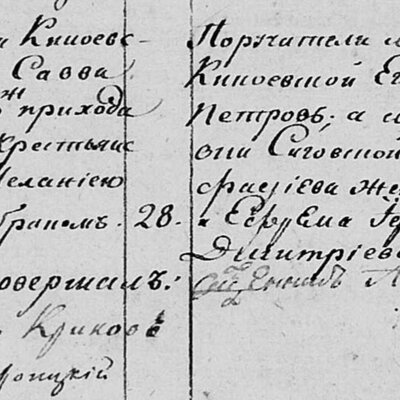 Киноевс-
Савва
прихода
Крестьянс
Меланиею
браномъ. 28.
овершалъ:
Крюковъ
роицкій
Поручители
Киноевской Ег
Петровъ. а
вни Сяговской
фасіева же
и Ефрема
Дмитріев